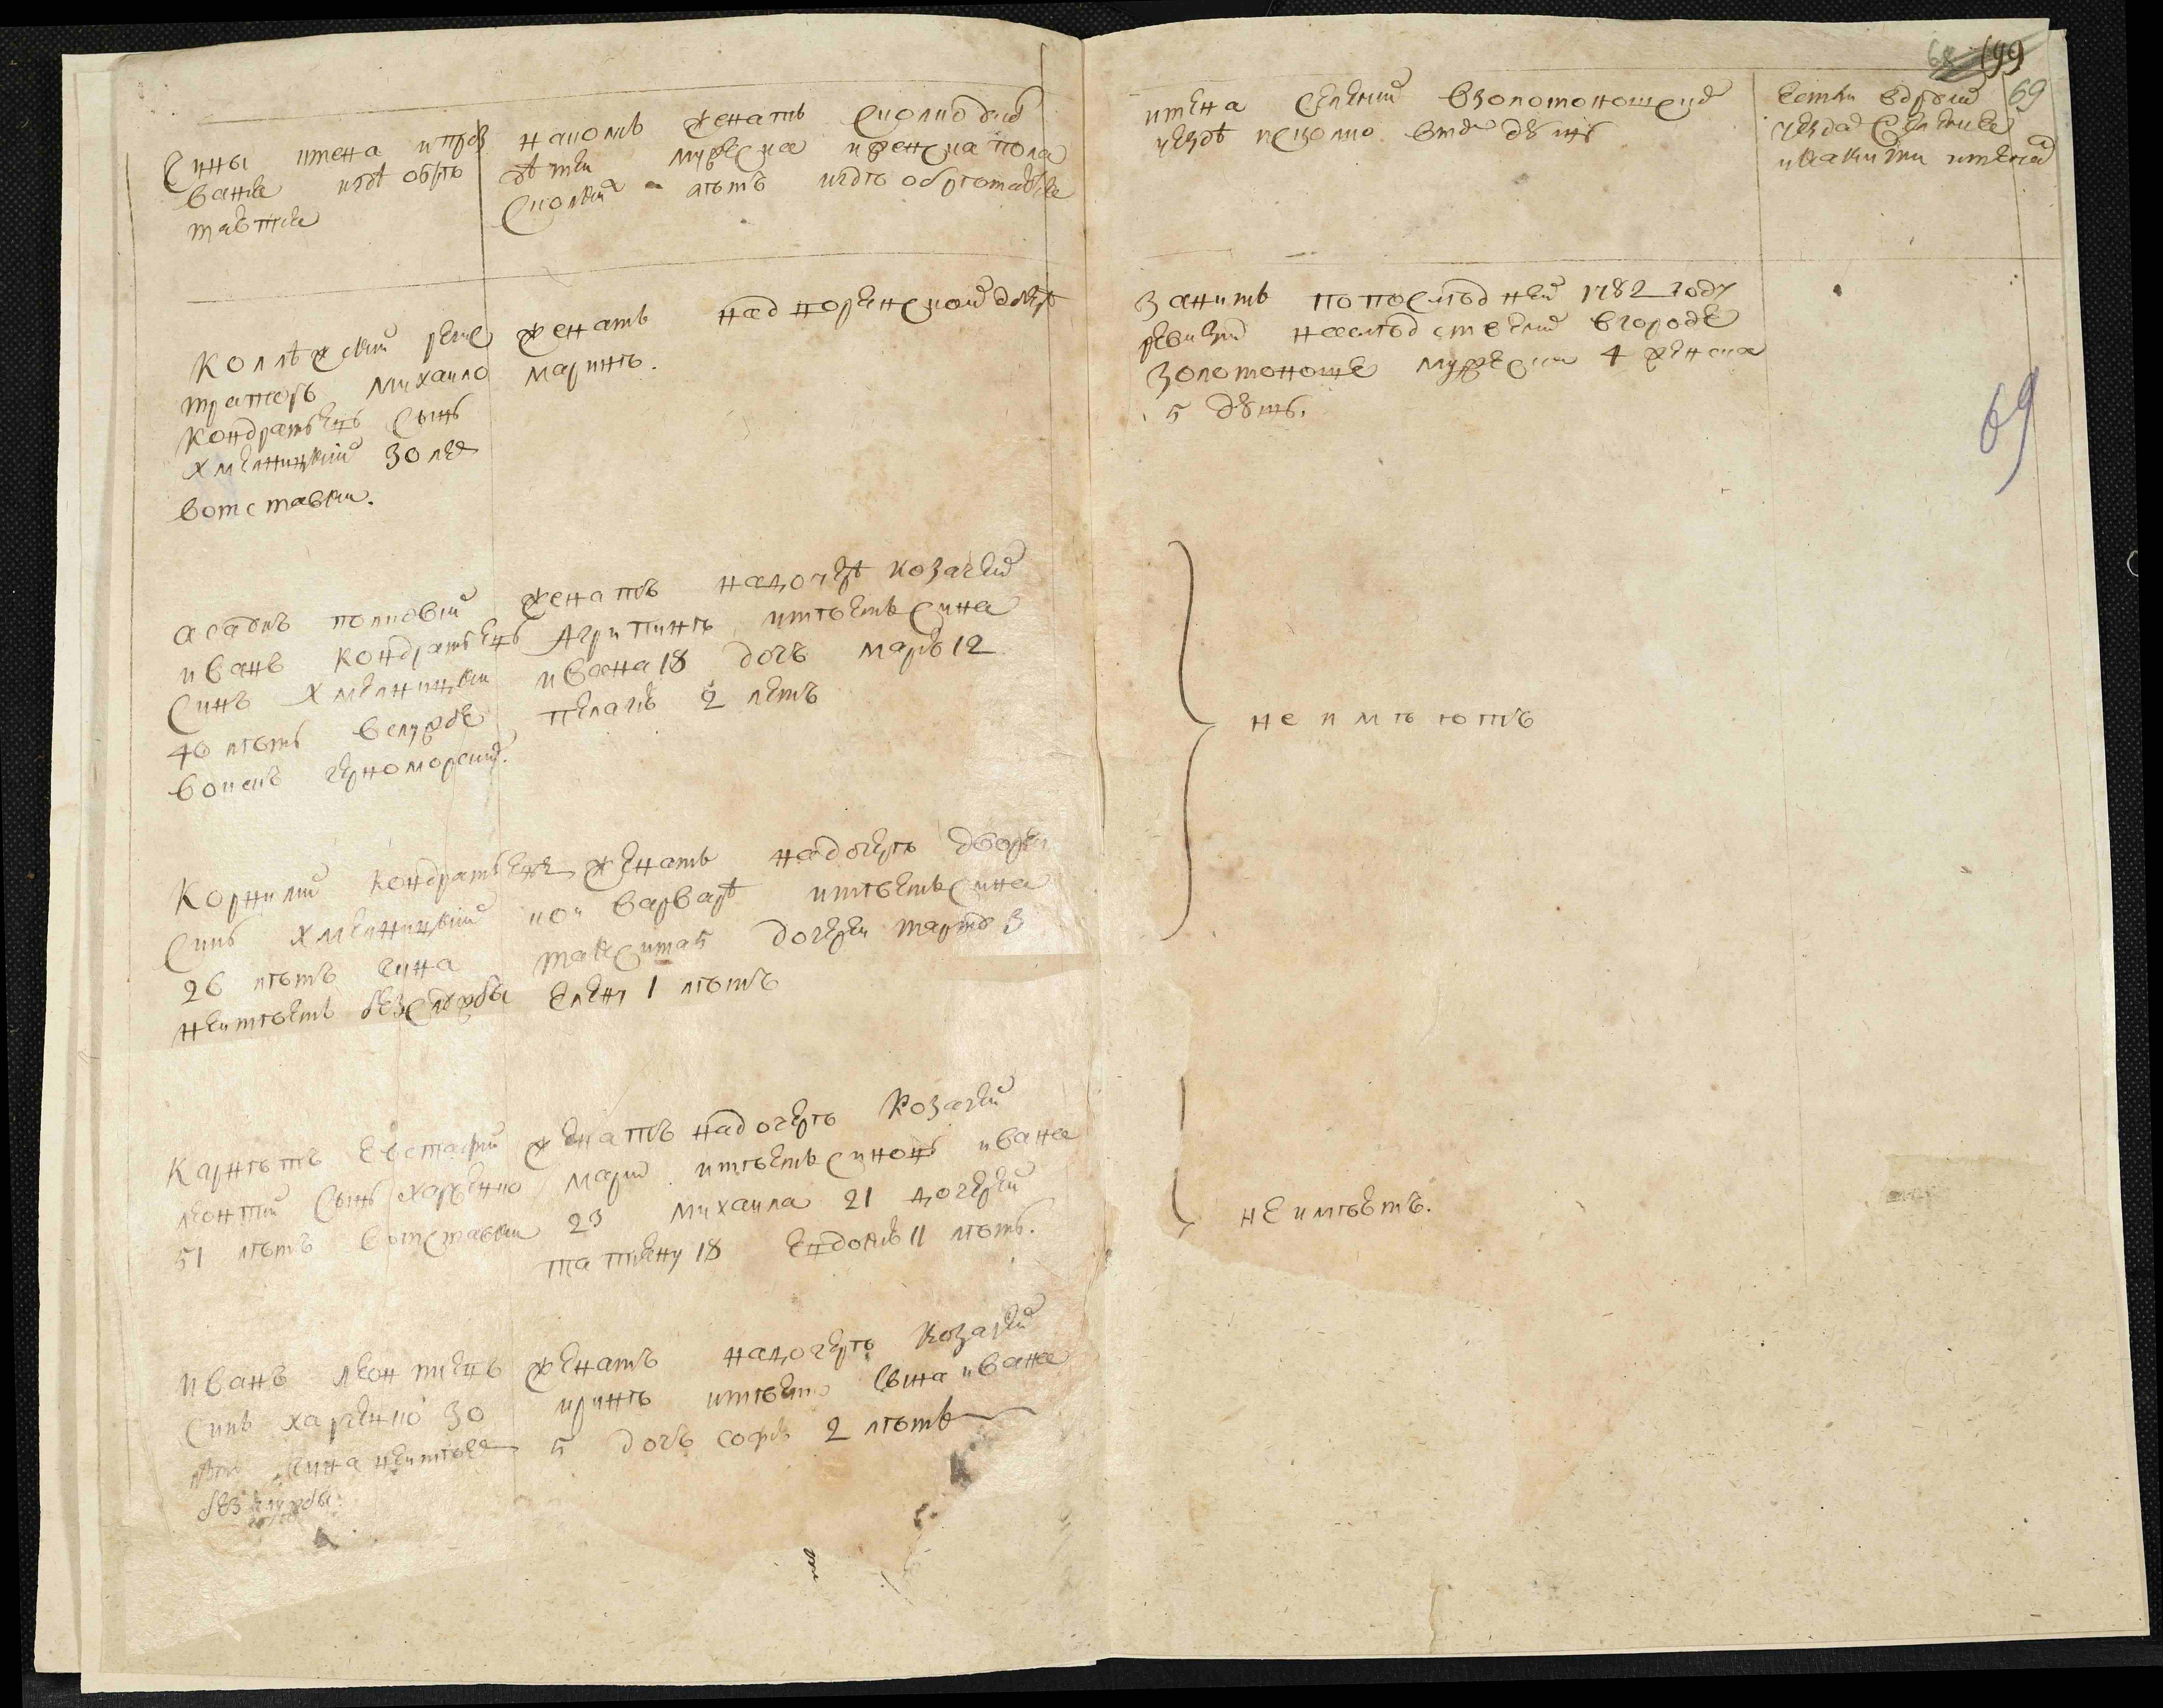 69
69
Чины имена и проз
вание и гдѣ обрѣ
тается
на комъ женатъ сколко
дѣтей мужеска и женска пола
сколкихъ лѣтъ и гдѣ обрѣтается
имена селений в золотоношском
уезде и сколко в том душъ
есть ли в других
уездах селение
и какими имены
Коллежский реги
страторъ Михайло
Кондратьевъ сынъ
Хмелницкий 30 лет
в отставки.
женатъ над
Маринѣ.
Занимъ по последней 1782 году
ревизии наследственно в городе
Золотоноше мужеска 4 женска
5 душъ.
асаулъ полковий
иванъ Кондратьевъ
синъ Хмелницкий
40 лѣтъ в службе
воискъ черноморских.
женатъ на дочерѣ козачей
Агрипинѣ имѣетъ сина
ивана 18 дочъ марю 12
пелагию 2 летъ
не имѣютъ
Корнилий Кондратьевъ
синъ Хмелницкий
26 лѣтъ чина
неимѣетъ без службы
женатъ на дочерѣ дворян
ской варварѣ имѣетъ сина
максима 5 дочерей марфу 3
елену 1 лѣтъ
Карнетъ Евстафий
леонтий сынъ Харченко
51 лѣтъ в отставки
женатъ на дочерѣ Козачей
Марии имѣетъ синовъ ивана
23 михаила 21 дочерей
татяну 18 Евдокию 11 лѣтъ.
не имѣетъ.
Иванъ леонтиевъ
синъ Харченко 30
лѣтъ чина не имѣет
без службы.
женатъ на дочерѣ козачей
иринѣ имѣетъ сына ивана
5 дочъ софию 2 лѣтъ